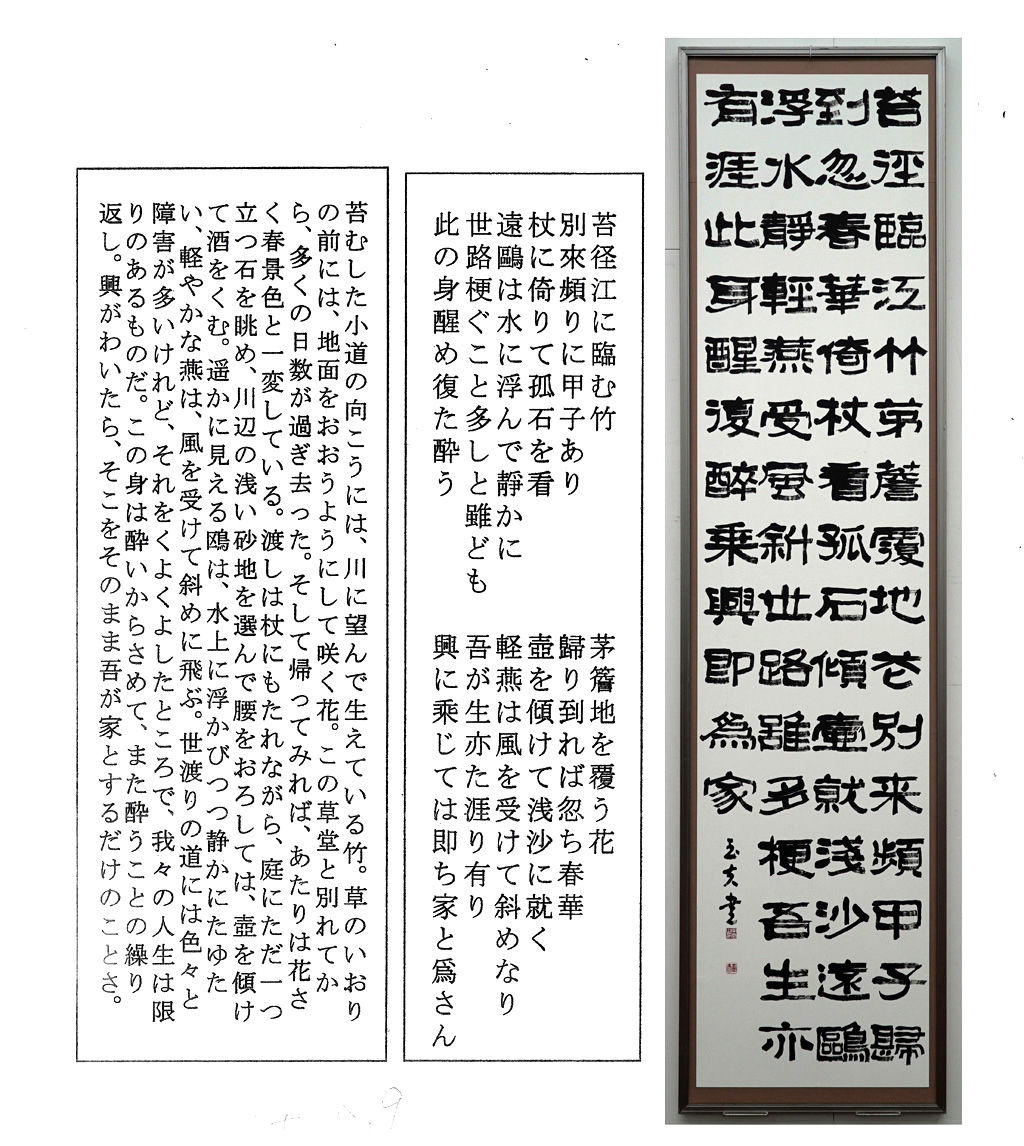 苔徑臨江竹茅簷覆地花別来頻甲子歸
到忽春華倚杖看孤石傾壺就淺沙遠鷗
浮水靜輕燕受風斜世路雖多梗吾生亦
有涯此身醒復醉乗興即為家
苔径江に臨む竹　茅簷地を覆う花
別來頻りに甲子あり　歸り到れば忽ち春華
杖に倚りて孤石を看　壺を傾けて浅沙に就く
遠鷗は水に浮んで靜かに　軽燕は風を受けて斜めなり
世路梗ぐこと多しと雖ども　吾が生亦た涯り有り
此の身醒め復た酔う　興に乘じては即ち家と爲さん
苔むした小道の向こうには、川に望んで生えている竹。草のいおり
の前には、地面をおおうようにして咲く花。この草堂と別れてか
ら、多くの日数が過ぎ去った。そして帰ってみれば、あたりは花さ
く春景色と一変している。渡しは杖にもたれながら、庭にただ一つ
立つ石を眺め、川辺の浅い砂地を選んで腰をおろしては、壺を傾け
て酒をくむ。遥かに見える鴎は、水上に浮かびつつ静かにたゆた
い、軽やかな燕は、風を受けて斜めに飛ぶ。世渡りの道には色々と
障害が多いけれど、それをくよくよしたところで、我々の人生は限
りのあるものだ。この身は酔いからさめて、また酔うことの繰り
返し。興がわいたら、そこをそのまま吾が家とするだけのことさ。